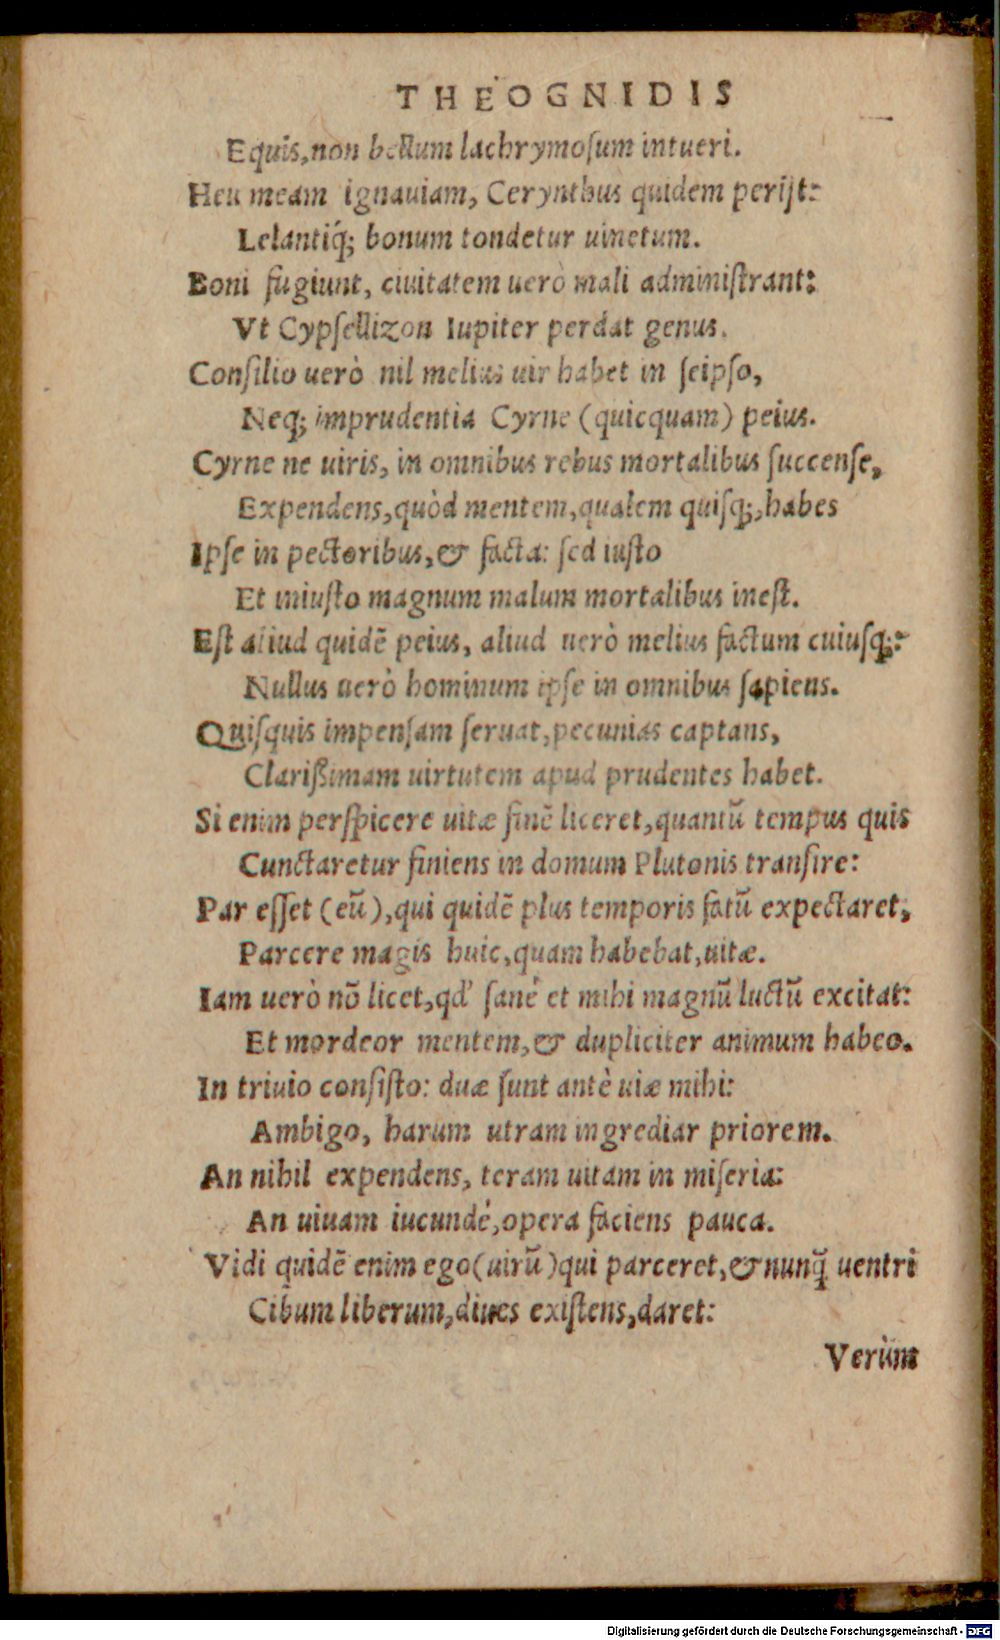 THEOGNIDIS
Equis, non bellum lachrymoſum intueri.
Heu meam ignauiam, Cerynthus quidem perijt:
Lelantiq́; bonum tondetur uinetum.
Boni fugiunt, ciuitatem uerò mali adminiſtrant:
Vt Cypſellizon Iupiter perdat genus.
Conſilio uerò nil melius uir habet in ſeipſo,
Neq; imprudentia Cyrne (quicquam) peius.
Cyrne ne uiris, in omnibus rebus mortalibus ſuccenſe,
Expendens, quòd mentem, qualem quiſq;, habes
Ipſe in pectoribus, & facta: ſed iuſto
Et iniuſto magnum malum mortalibus ineſt.
Eſt aliud quidē peius, aliud uerò melius factum cuiuſq;:
Nullus uerò hominum ipſe in omnibus ſapiens.
Quiſquis impenſam ſeruat, pecunias captans,
Clarißimam uirtutem apud prudentes habet.
Si enim perſpicere uitæ finē liceret, quantū tempus quis
Cunctaretur finiens in domum Plutonis tranſire:
Par eſſet (eū), qui quidē plus temporis fatū expectaret,
Parcere magis huic, quam habebat, uitæ.
Iam uerò nō licet, qd' ſanè et mihi magnū luctū excitat:
Et mordeor mentem, & dupliciter animum habeo.
In triuio conſiſto: duæ ſunt antè uiæ mihi:
Ambigo, harum utram ingrediar priorem.
An nihil expendens, teram uitam in miſeria:
An uiuam iucundè, opera faciens pauca.
Vidi quidē enim ego (uirū) qui parceret, & nunq̃ uentri
Cibum liberum, diues exiſtens, daret:
Verùm
Digitalisierung gefördert durch die Deutsche Forschungsgemeinschaft - DFG